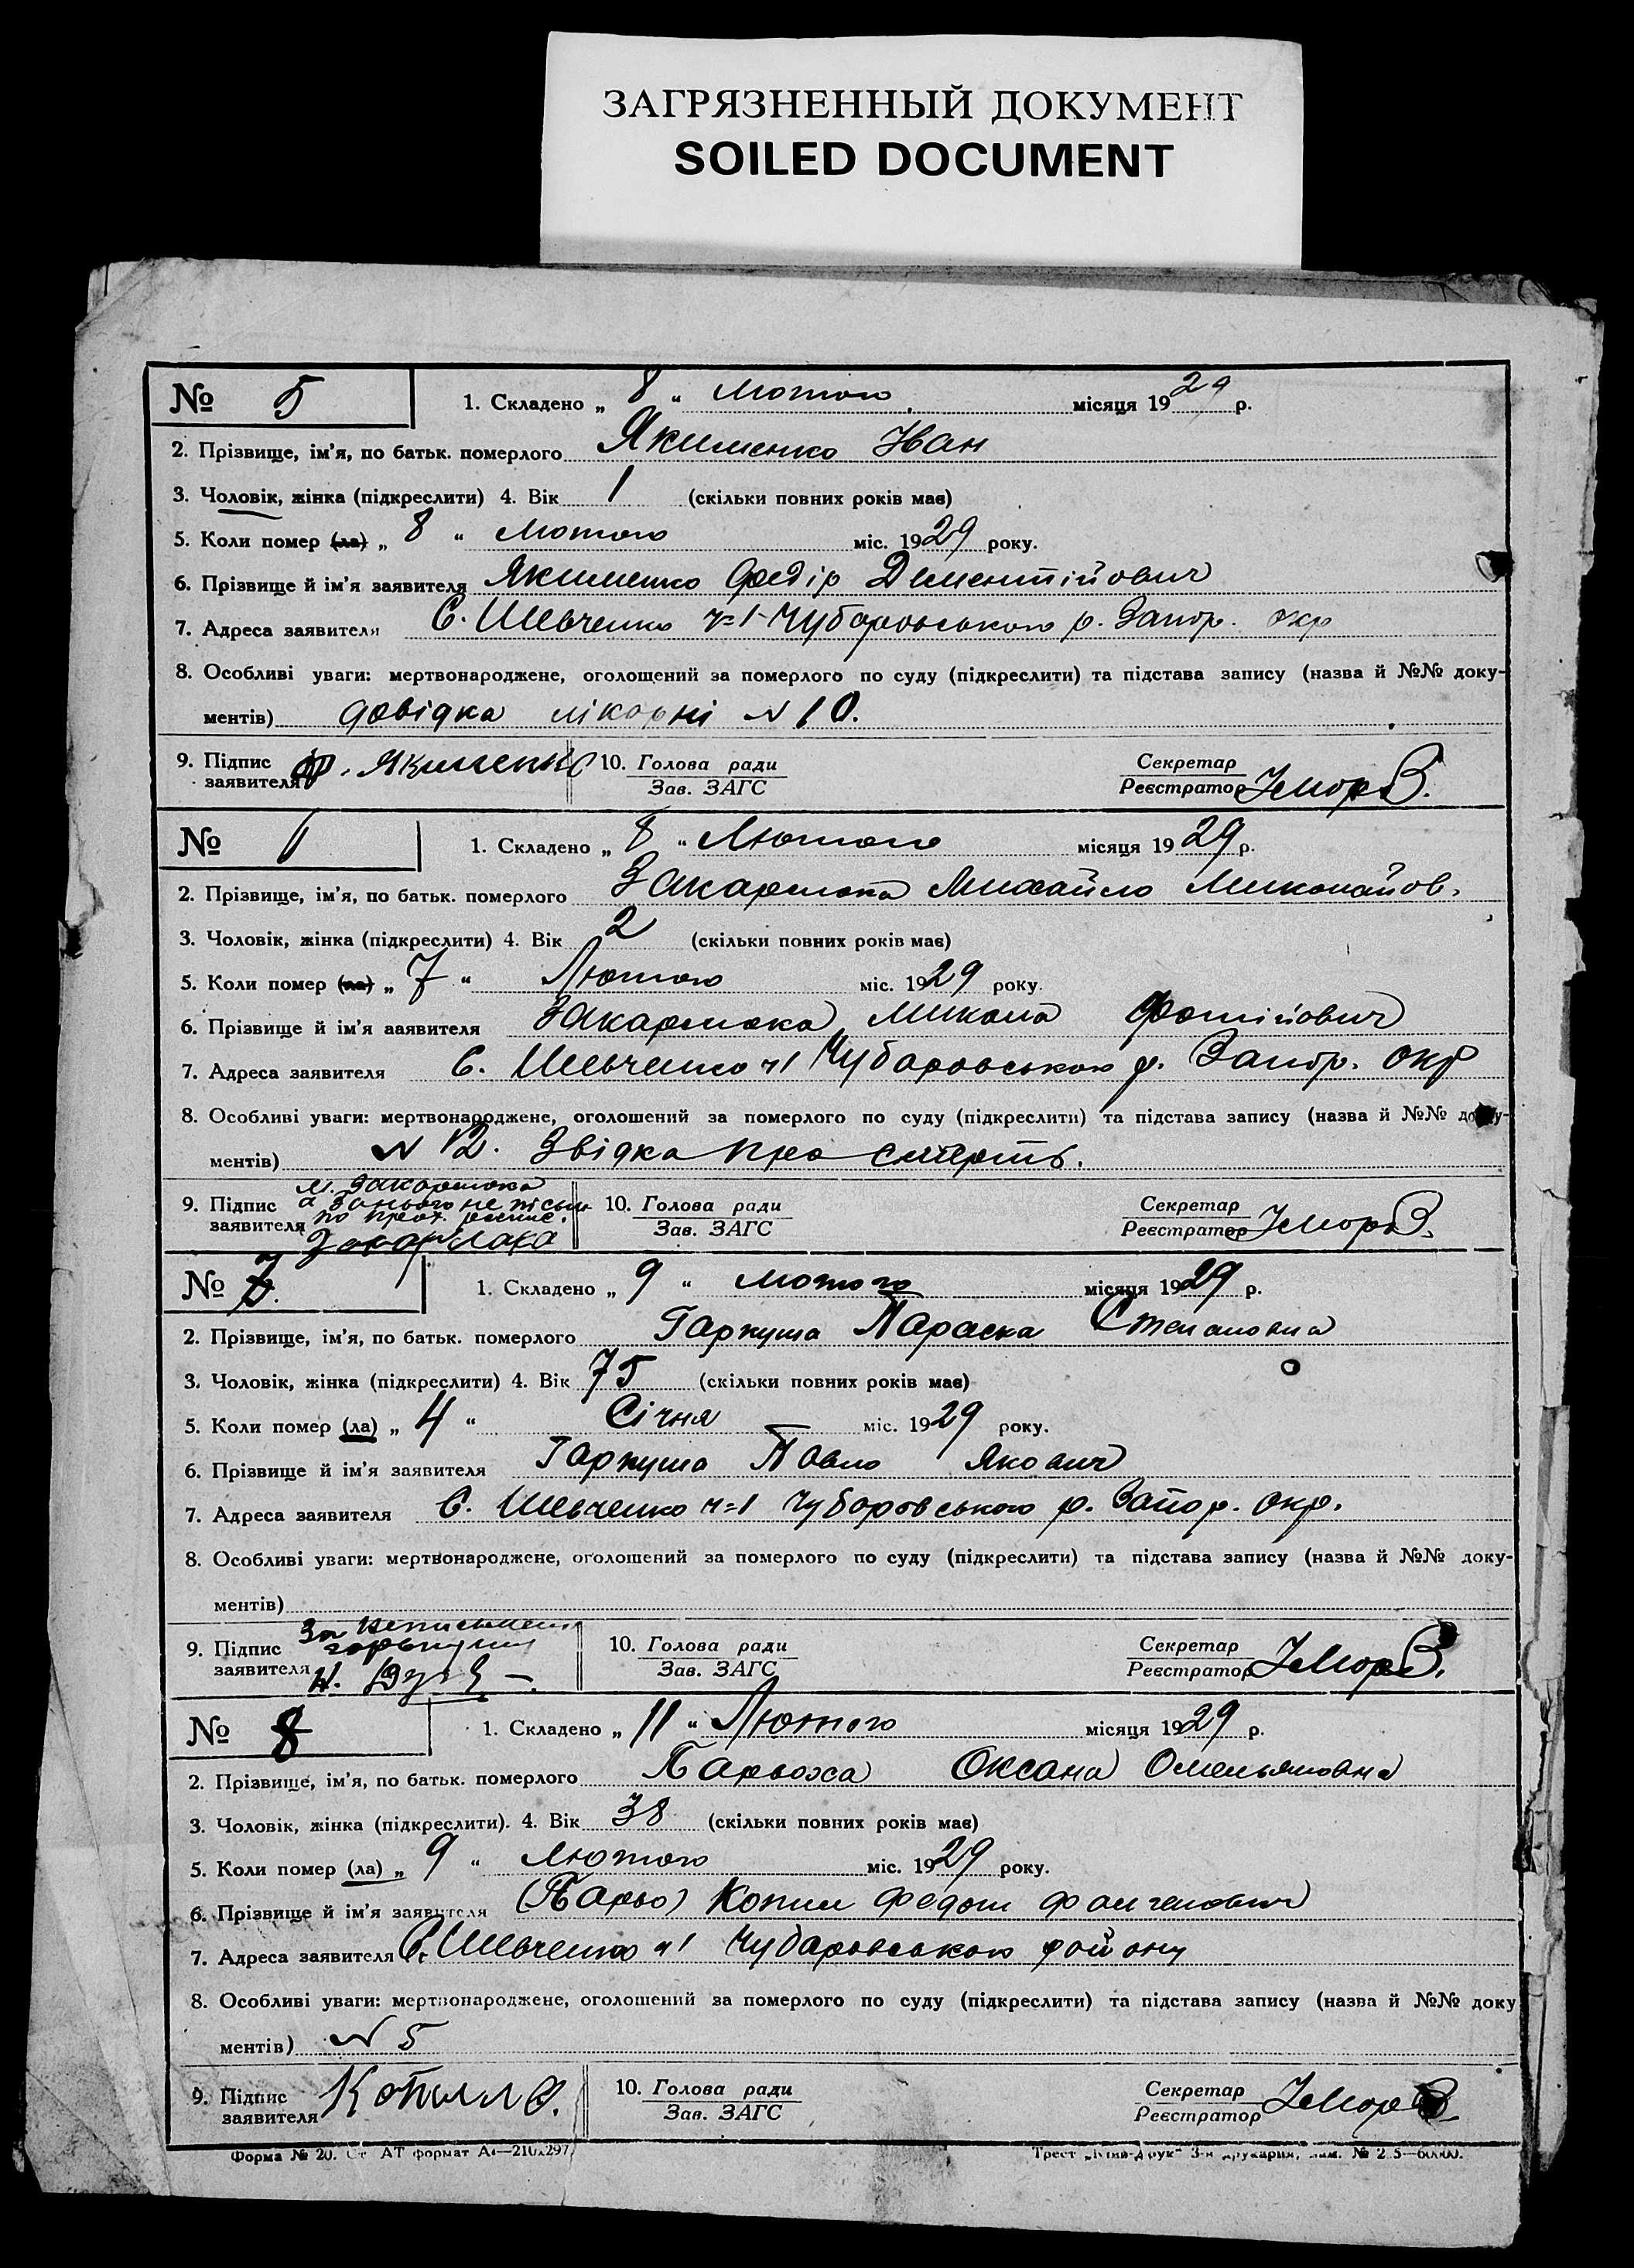 ЗАГРЯЗНЕННЫЙ ДОКУМЕНТ
SOILED DOCUMENT
№ 5 1. Складено „ 8 “ Лютого місяця 1929 р.
2. Прізвище, ім’я, по батьк. померлого Якименко Іван
3. Чоловік, жінка (підкреслити) 4. Вік 1 (скільки повних років має)
5. Коли помер (ла) „ 8 “ Лютого міс. 1929 року.
6. Прізвище й ім’я заявителя Якименко Федір Дементійович
7. Адреса заявителя С. Шевченко ч=1 Чубаровського р. Запор. окр
8. Особливі уваги: мертвонароджене, оголошений за померлого по суду (підкреслити) та підстава запису (назва й №№ доку-
ментів) довідка лікарні N 10.
9. Підпис заявителя Ф. Якименко 10. Голова ради Зав. ЗАГС Секретар Реєстратор
№ 1. Складено „ 8 “ Лютого місяця 1929 р.
2. Прізвище, ім’я, по батьк. померлого Закарлюка Михайло Миколайов.
3. Чоловік, жінка (підкреслити) 4. Вік 2 (скільки повних років має)
5. Коли помер (ла) „ 7 “ Лютого міс. 1929 року.
6. Прізвище й ім’я заявителя Закарлюка Микола Фотійович
7. Адреса заявителя С. Шевченко ч1 Чубаровського р. Запор. окр
8. Особливі уваги: мертвонароджене, оголошений за померлого по суду (підкреслити) та підстава запису (назва й №№ доку-
ментів) N 12. Звідка про смерть.
9. Підпис заявителя М. Закарлюка а за нього не письм по прох. Закарлюка 10. Голова ради Зав. ЗАГС Секретар Реєстратор
№ 7. 1. Складено „ 9 “ Лютого місяця 1929 р.
2. Прізвище, ім’я, по батьк. померлого Гаркуша Параска Степановна
3. Чоловік, жінка (підкреслити) 4. Вік 75 (скільки повних років має)
5. Коли помер (ла) „ 4 “ Січня міс. 1929 року.
6. Прізвище й ім’я заявителя Гаркуша Павло Якович
7. Адреса заявителя С. Шевченко ч=1 Чубаровського р. Запор. окр.
8. Особливі уваги: мертвонароджене, оголошений за померлого по суду (підкреслити) та підстава запису (назва й №№ доку-
ментів)
9. Підпис заявителя За 10. Голова ради Зав. ЗАГС Секретар Реєстратор
№ 8 1. Складено „ 11 “ Лютого місяця 1929 р.
2. Прізвище, ім’я, по батьк. померлого Оксана Омельяновна
3. Чоловік, жінка (підкреслити). 4. Вік 38 (скільки повних років має)
5. Коли помер (ла) „ 9 “ Лютого міс. 1929 року.
6. Прізвище й ім’я заявителя Копил Федот
7. Адреса заявителя С. Шевченко ч1 Чубаровського району
8. Особливі уваги: мертвонароджене, оголошений за померлого по суду (підкреслити) та підстава запису (назва й №№ доку
ментів) N 5
9. Підпис заявителя 10. Голова ради Зав. ЗАГС Секретар Реєстратор
Форма № 20. Ст АТ формат А4—210x297 Трест „Київ-Друк“ 3-я друкарня, зам.